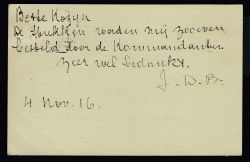 Beste Kozyn
De stukken worden mij zooeven
besteld door de Kommandantur.
Zeer wel bedankt.
J. D. B.
4 Nov. 16.